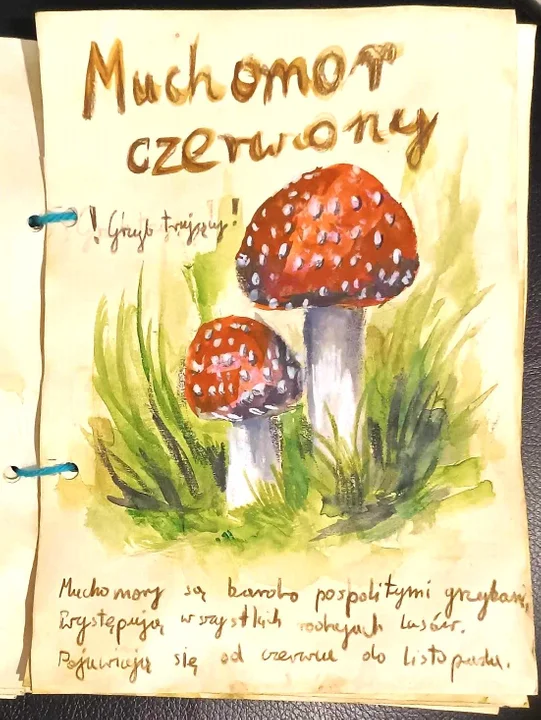 Muchomor
czerwony
! Grzyb trujący!
Muchomory są bardzo pospolitymi grzybami,
Występują w wszystkich rodzajach lasów.
Pojawiają się od czerwca do listopada.